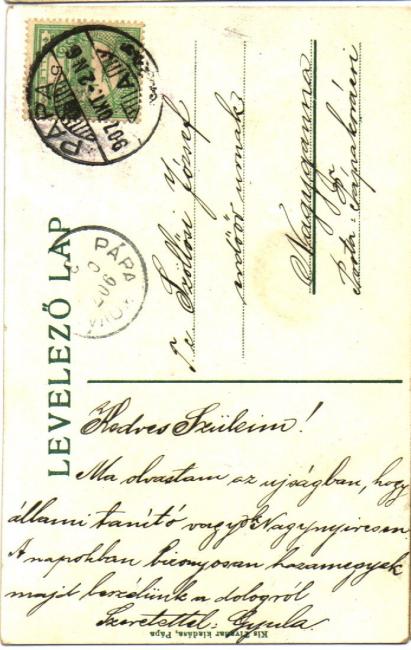 LEVELEZŐ LAP
PÁPA
907 OKT. 2
PÁPA
T. c. Szöllősi József
erdőőr urnak
Nagyganna
Posta: Pápakovácsi
Kedves Szüleim!
Ma olvastam az ujságban, hogy
állami tanító vagyok Nagynyiresen
A napokban bizonyosan hazamegyek
majd beszélünk a dologról
Szeretettel: Gyula.
Kis Tivadar kiadása, Pápa